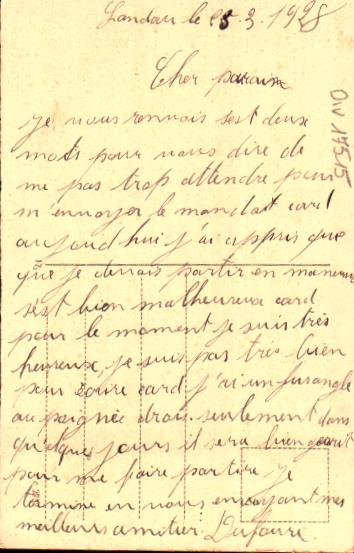 Landau le 25.3.1928
Cher parain
je vous renvois sest deux
mots pour vous dire de
me pas trop attendre pour
m'envoyer le mandat card
aujourd hui j'ai appris que
que je devais partir en manœuvre
s'est bien malheureux card
pour le moment je suis très
heureux, je suis pas très bien
pour écrire card j'ai un furangle
au poignée droit seulement dans
quelque jours il sera bien
pour me faire partire je
termine en vous envoyant mes
meilleurs amitier. Dufourre.